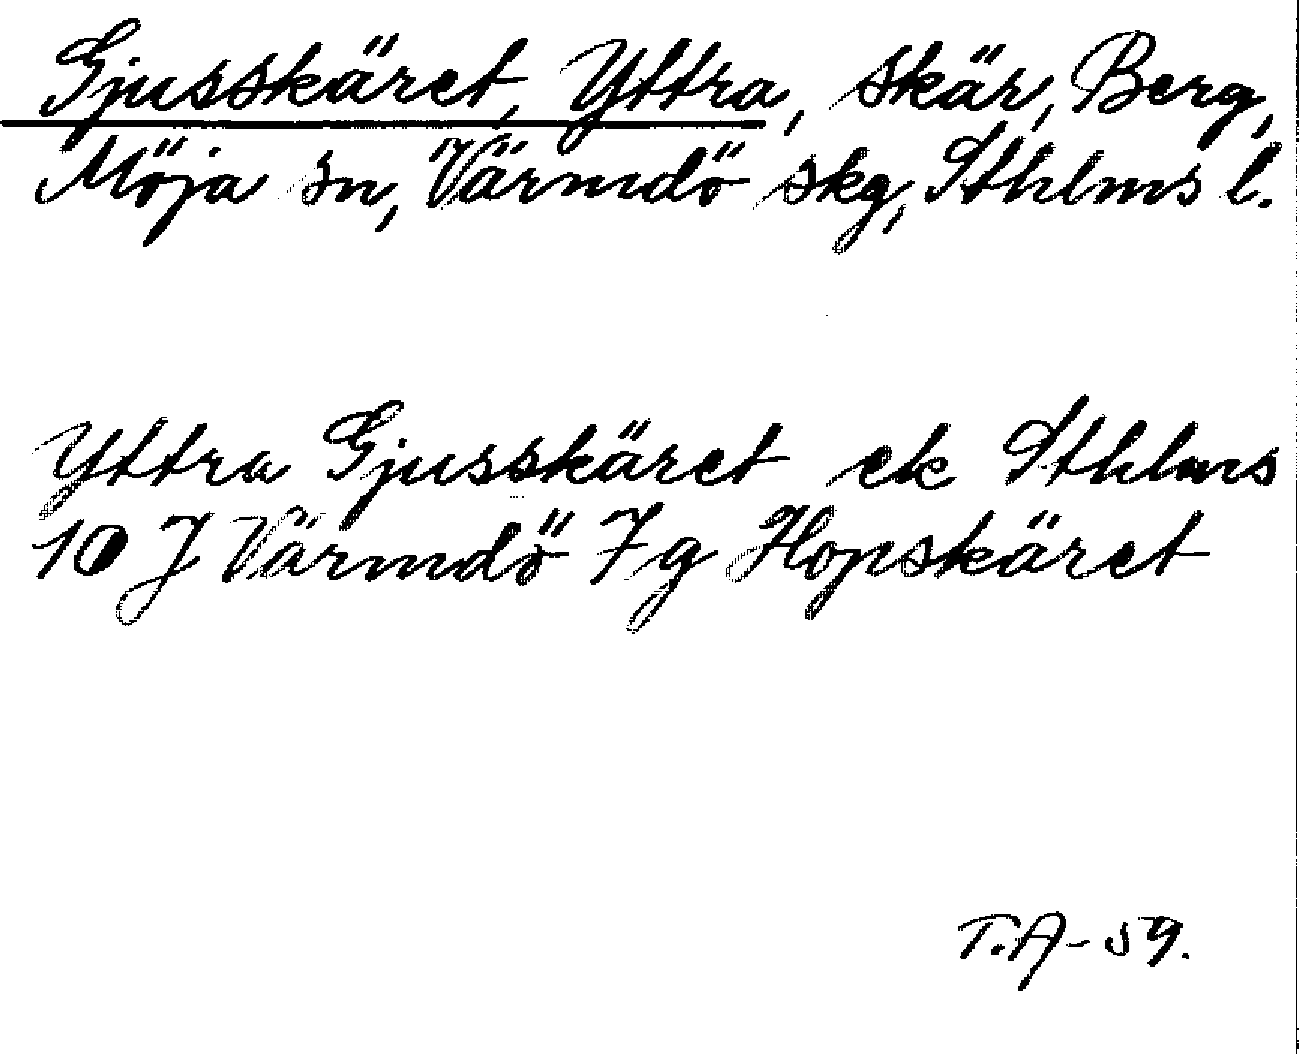 Gjusskäret, Yttra, skär, Berg,
Möja sn, Värmdö skg, Sthlms l.
Yttra Gjusskäret ek Sthlms
10 J Värmdö 7 g Hopskäret
T.A-59.